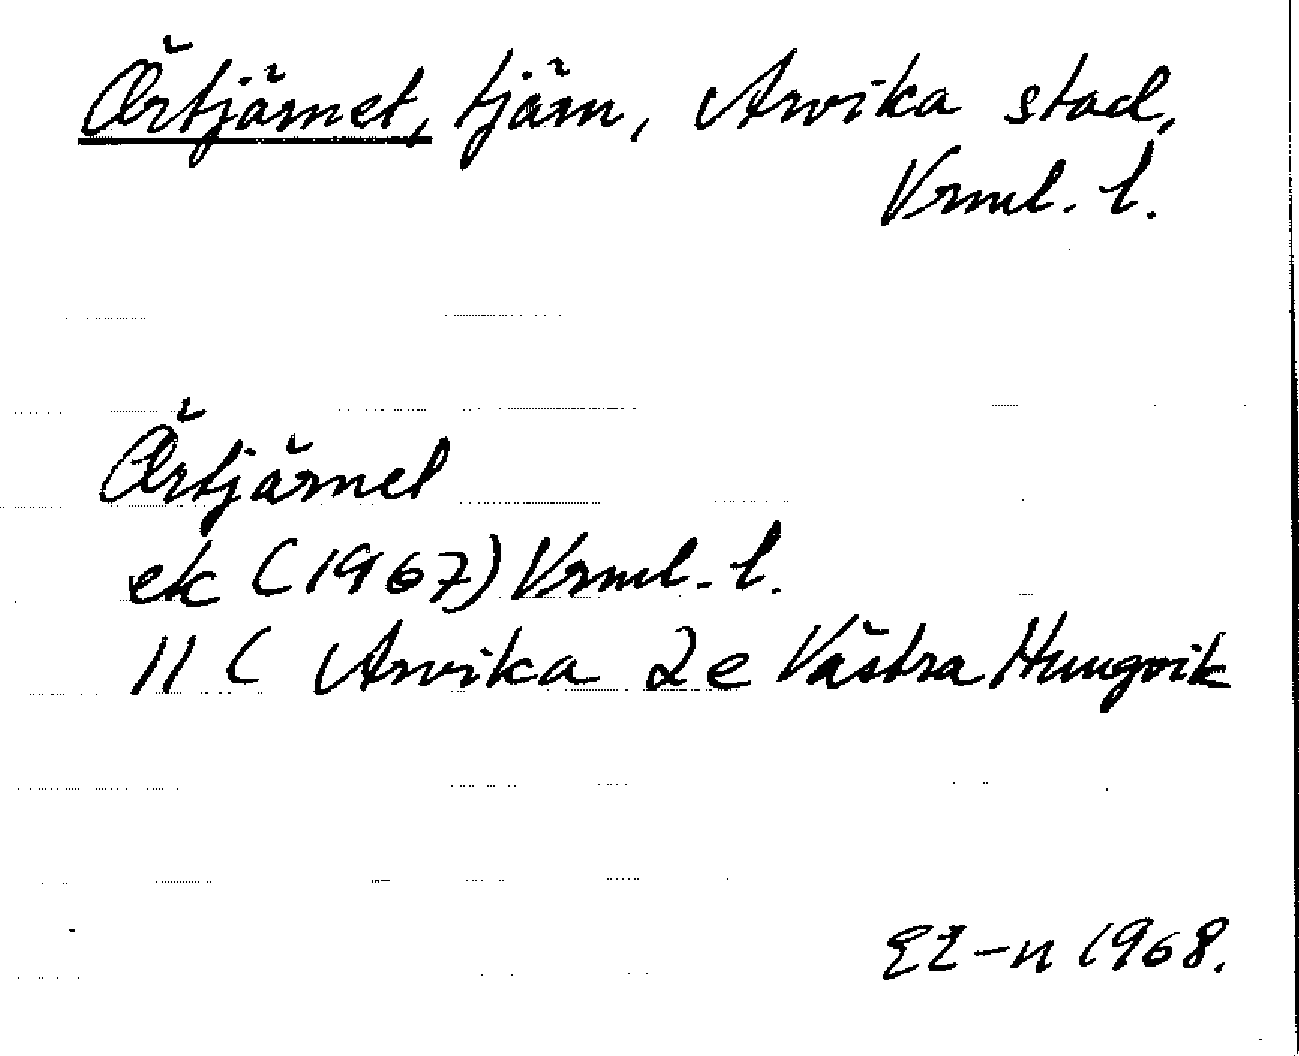 Örtjärnet, tjärn, Arvika stad,
Vrml. l.
Örtjärnet
ek (1967) Vrml. l.
11 C Arvika 2 e Västra Hungvik
1968.